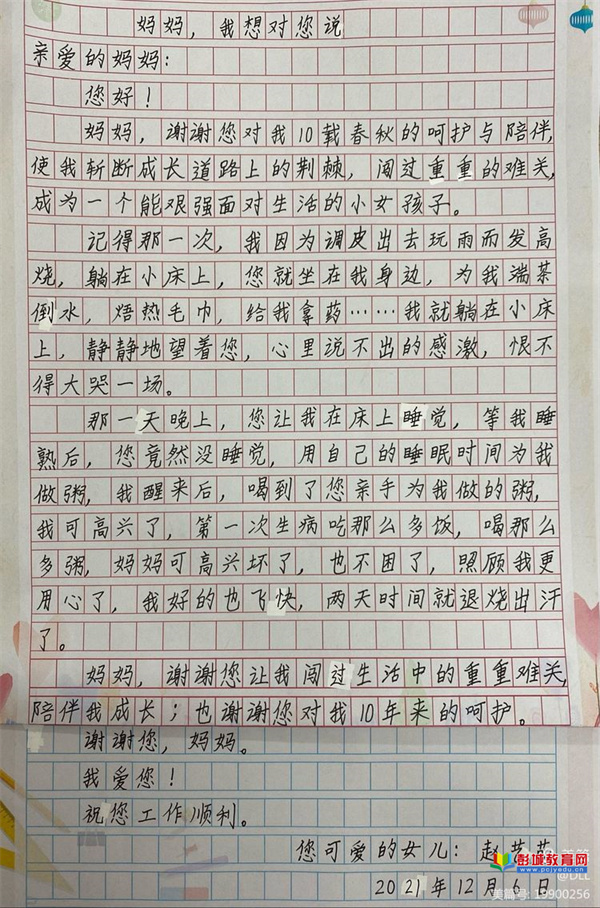 妈妈，我想对您说
亲爱的妈妈：
您好！
妈妈，谢谢您对我10载春秋的呵护与陪伴，
使我斩断成长道路上的荆棘，闯过重重的难关，
成为一个能艰强面对生活的小女孩子。
记得那一次，我因为调皮出去玩雨而发高
烧，躺在小床上，您就坐在我身边，为我端茶
倒水，焐热毛巾，给我拿药……我就躺在小床
上，静静地望着您，心里说不出的感激，恨不
得大哭一场。
那一天晚上，您让我在床上睡觉，等我睡
熟后，您竟然没睡觉，用自己的睡眠时间为我
做粥，我醒来后，喝到了您亲手为我做的粥，
我可高兴了，第一次生病吃那么多饭，喝那么
多粥，妈妈可高兴坏了，也不困了，照顾我更
用心了，我好的也飞快，两天时间就退烧出汗
了。
妈妈，谢谢您让我闯过生活中的重重难关，
陪伴我成长；也谢谢您对我10年来的呵护。
谢谢您，妈妈。
我爱您！
祝您工作顺利。
您可爱的女儿：赵
2021年12月6日
彭城教育网
www.pcjyedu.com
@DLL
美篇号：19900256